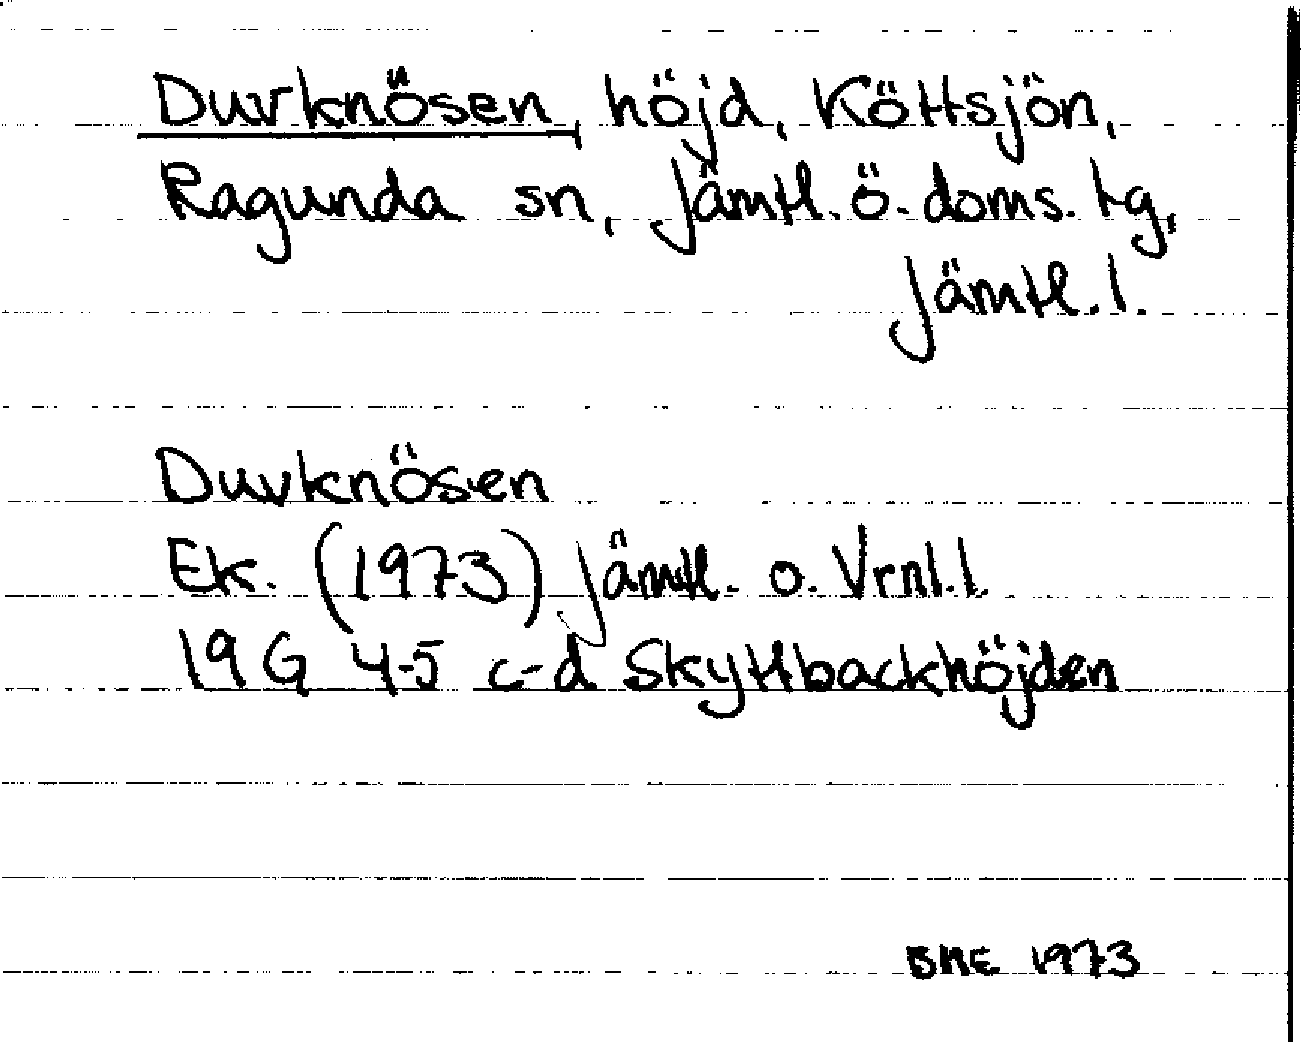 Duvknösen, höjd, Köttsjön,
Ragunda sn, Jämtl. ö. doms. tg,
Jämtl. l.
Duvknösen
Ek. (1973) Jämtl. o. Vrnl. l.
19 G 4-5 c-d Skyttbackhöjden
BME 1973